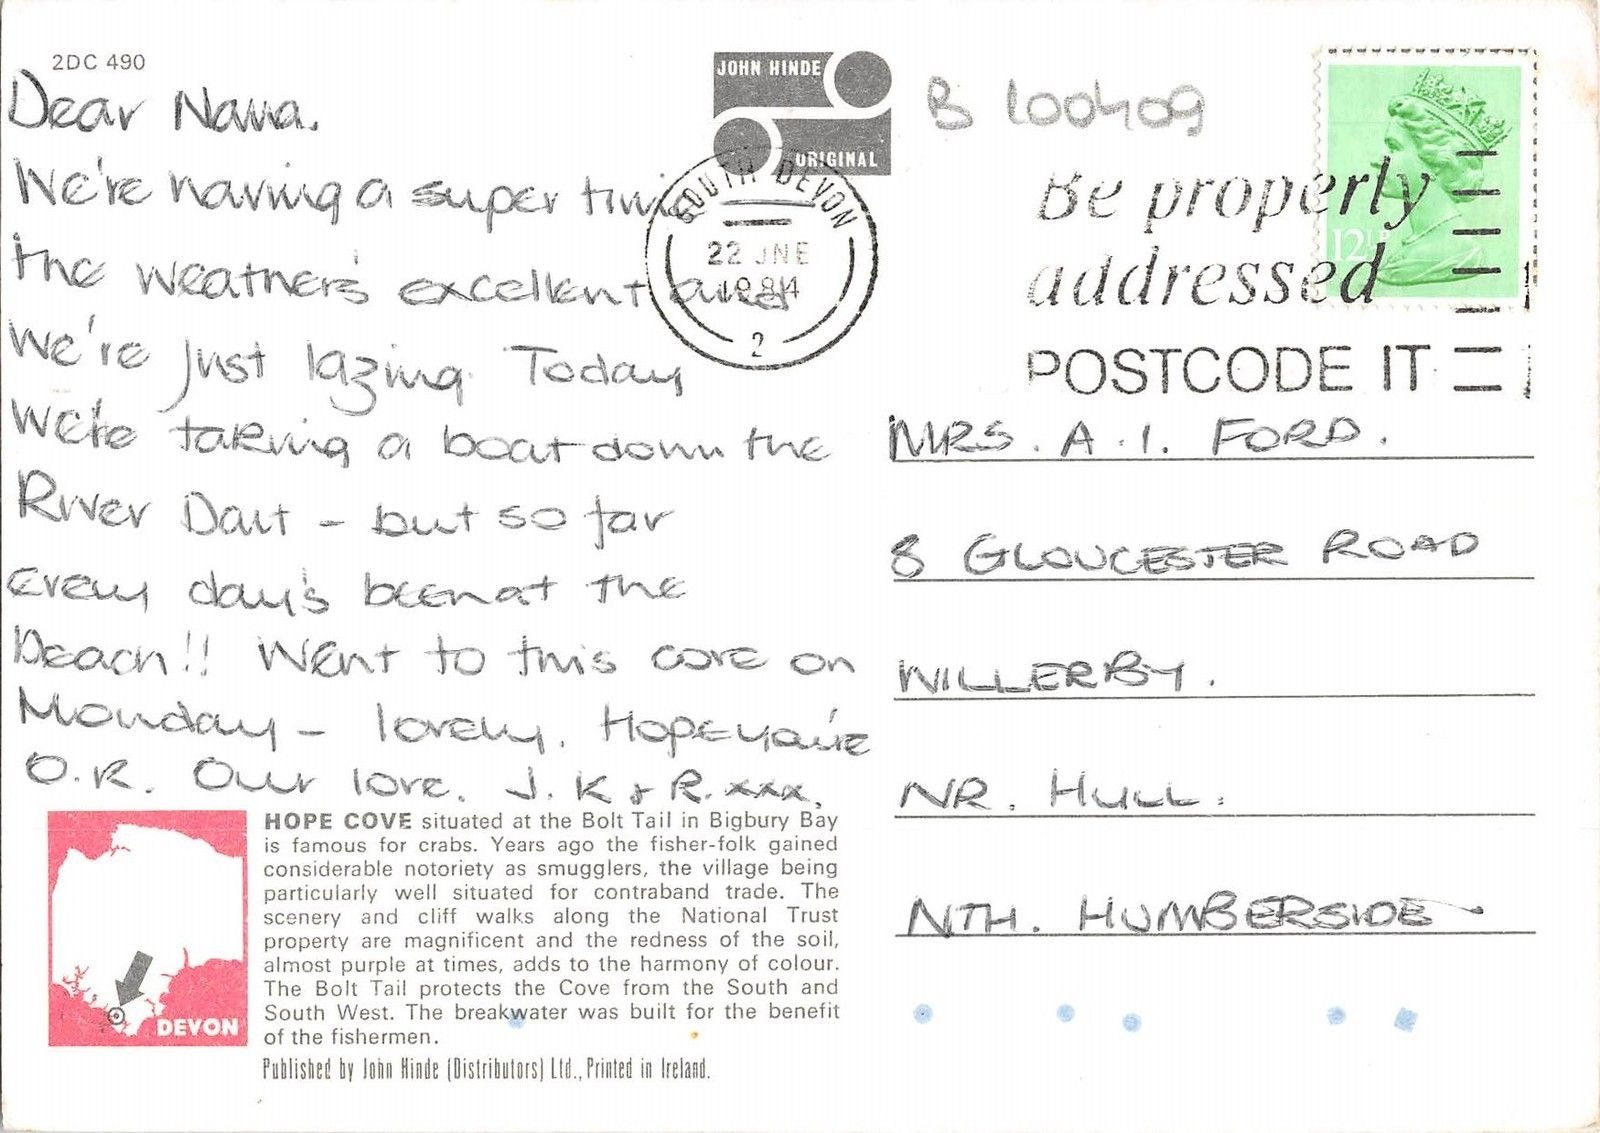 2DC 490
Dear Nana.
We're having a super time
the weather's excellent and
We're just lazing. Today
We're taking a boat down the
River Dart - but so far
every day's been at the
beach!! Went to this cove on
Monday - lovely. Hope you're
O.K. Our love. J. K & R. xxx.
JOHN HINDE
ORIGINAL
SOUTH DEVON
22 JNE
1984
2
B 100409
Be properly
addressed
POSTCODE IT
12½P
MRS. A.I. FORD.
8 GLOUCESTER ROAD
WILLERBY.
NR. HULL.
NTH. HUMBERSIDE
DEVON
HOPE COVE situated at the Bolt Tail in Bigbury Bay
is famous for crabs. Years ago the fisher-folk gained
considerable notoriety as smugglers, the village being
particularly well situated for contraband trade. The
scenery and cliff walks along the National Trust
property are magnificent and the redness of the soil,
almost purple at times, adds to the harmony of colour.
The Bolt Tail protects the Cove from the South and
South West. The breakwater was built for the benefit
of the fishermen.
Published by John Hinde (Distributors) Ltd., Printed in Ireland.